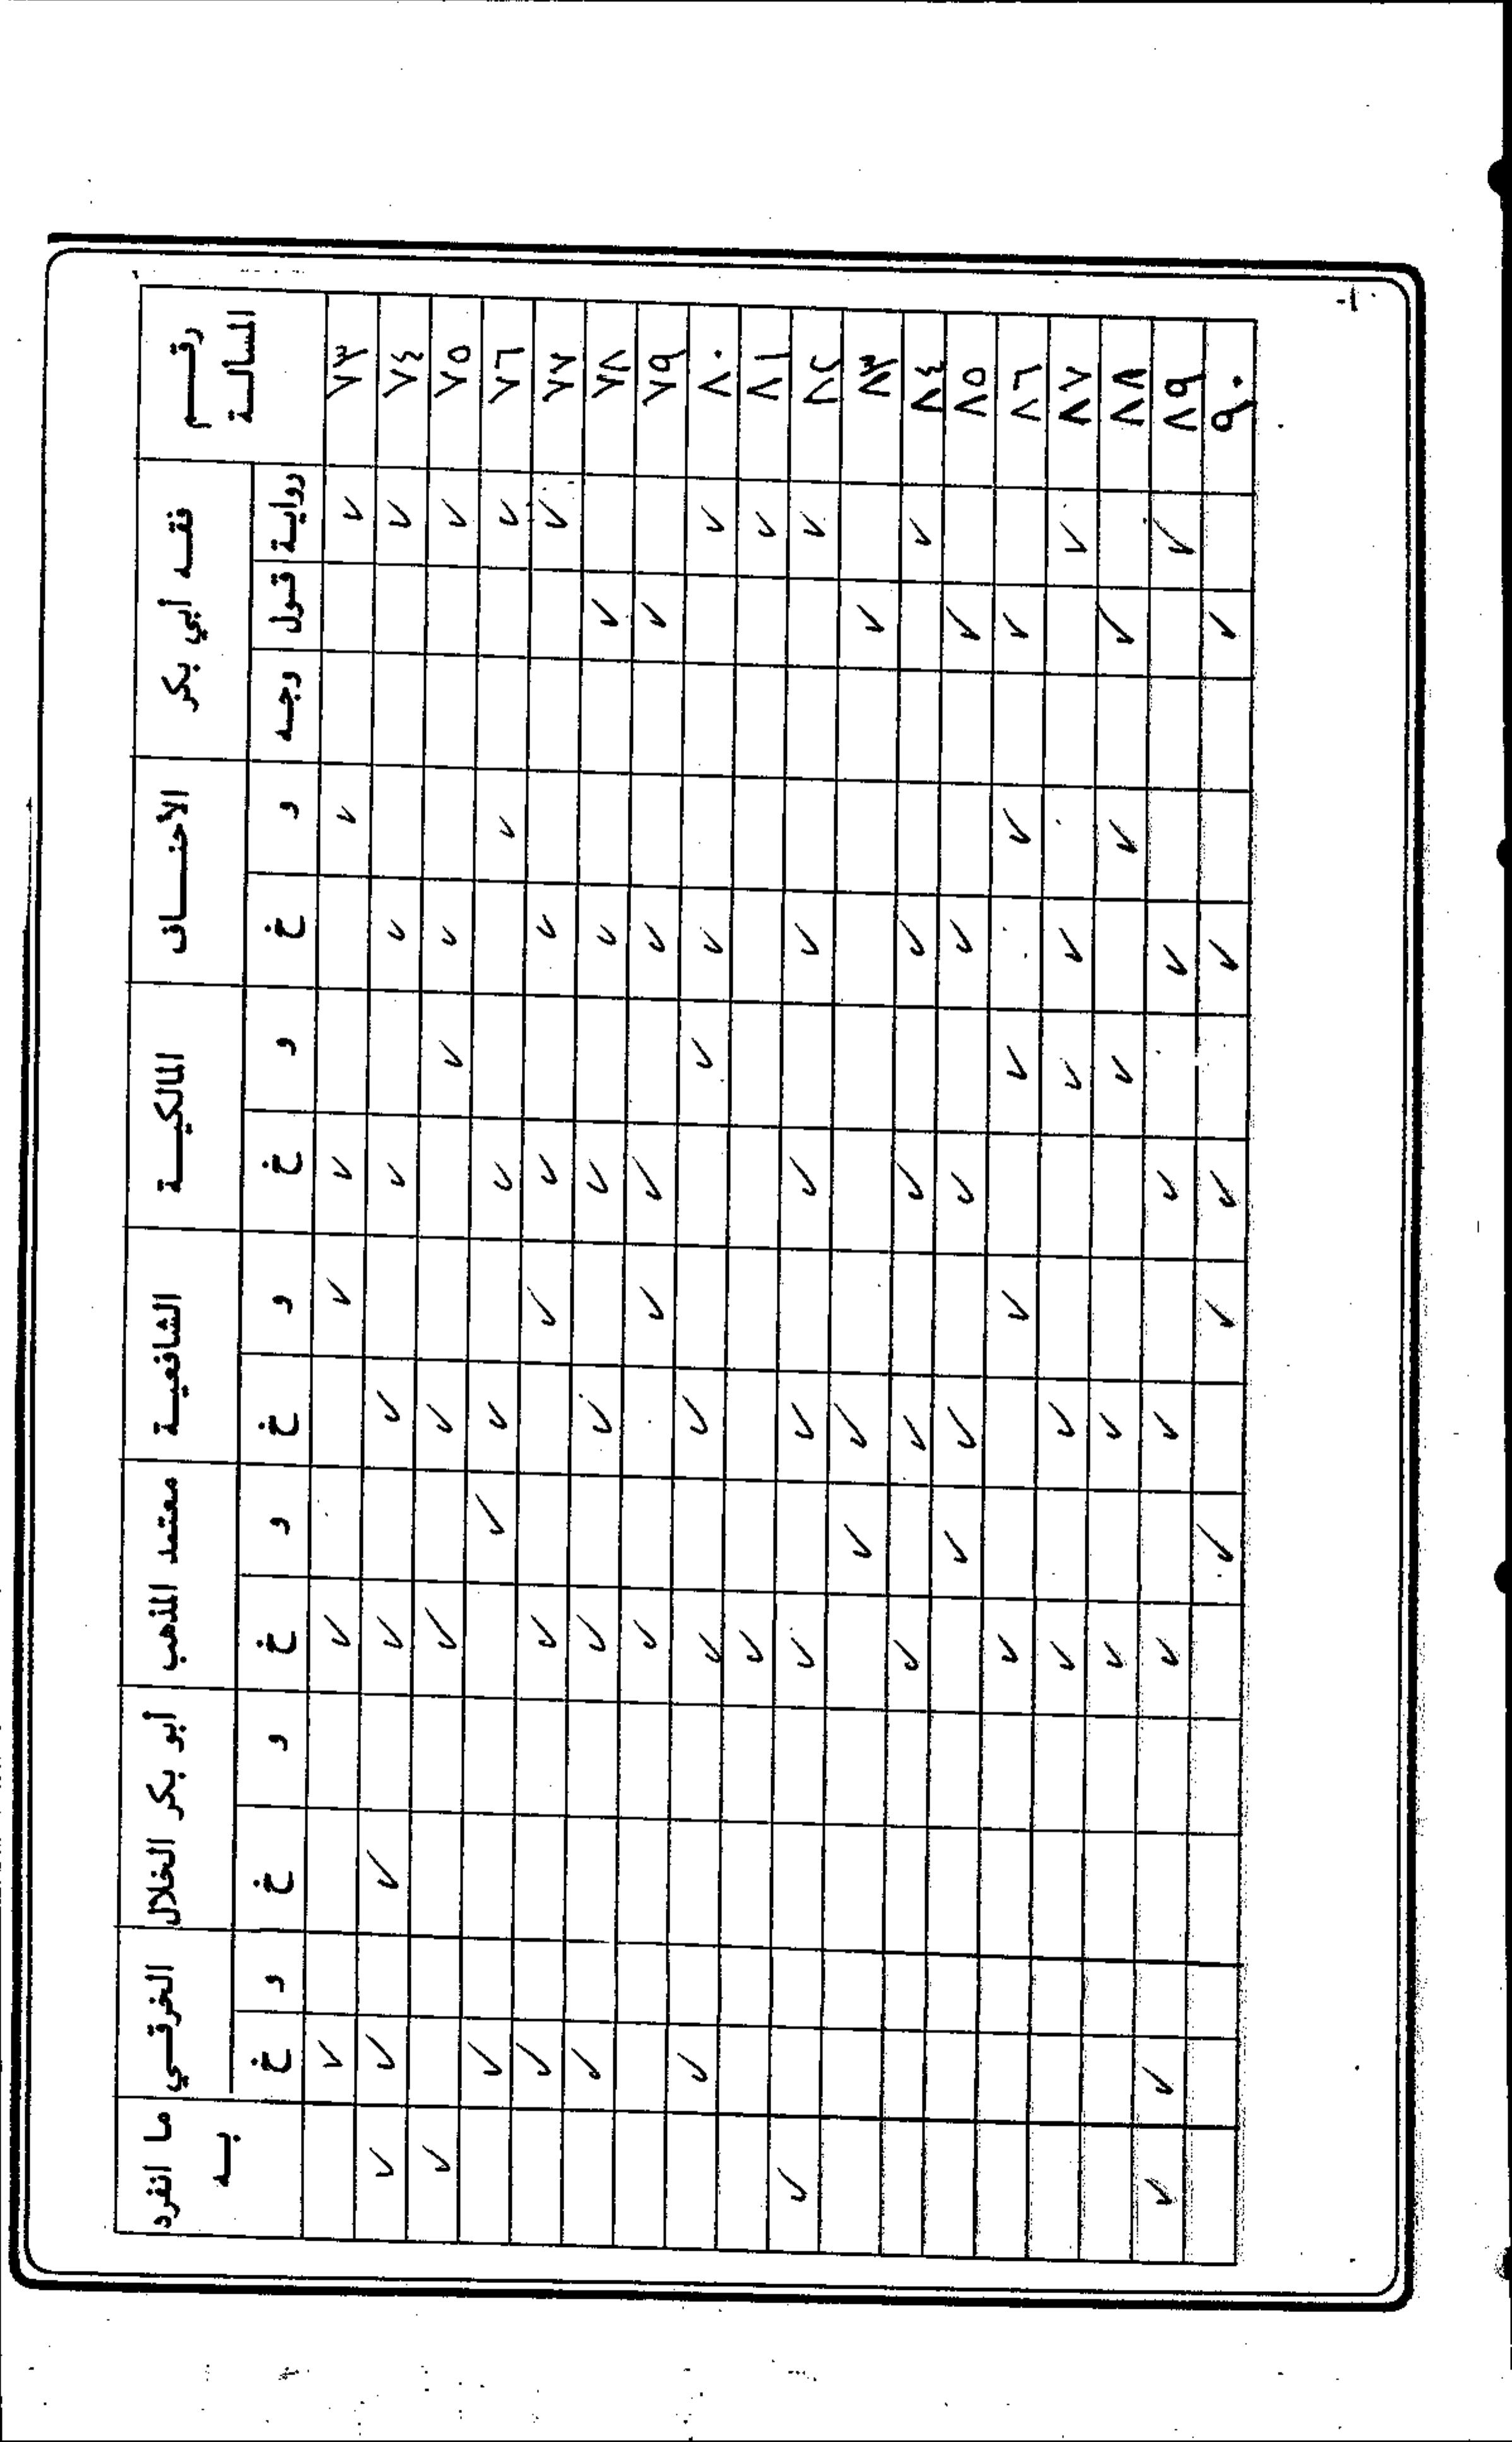 رقم المسالة فقه أبي بكر الأحناف المالكية الشافعية معتمد المذهب أبو بكر الخلال الخرقي ما انفرد به
رواية قول وجه و خ و خ و خ و خ و خ و خ
٧٣ ✓ ✓ ✓ ✓ ✓ ✓
٧٤ ✓ ✓ ✓ ✓ ✓ ✓ ✓ ✓
٧٥ ✓ ✓ ✓ ✓ ✓ ✓
٧٦ ✓ ✓ ✓ ✓ ✓ ✓
٧٧ ✓ ✓ ✓ ✓ ✓ ✓
٧٨ ✓ ✓ ✓ ✓ ✓ ✓
٧٩ ✓ ✓ ✓ ✓ ✓
٨٠ ✓ ✓ ✓ ✓ ✓ ✓
٨١ ✓ ✓
٨٢ ✓ ✓ ✓ ✓ ✓ ✓
٨٣ ✓ ✓ ✓
٨٤ ✓ ✓ ✓ ✓ ✓
٨٥ ✓ ✓ ✓ ✓ ✓
٨٦ ✓ ✓ ✓ ✓ ✓
٨٧ ✓ ✓ ✓ ✓ ✓
٨٨ ✓ ✓ ✓ ✓ ✓
٨٩ ✓ ✓ ✓ ✓ ✓ ✓ ✓
٩٠ ✓ ✓ ✓ ✓ ✓